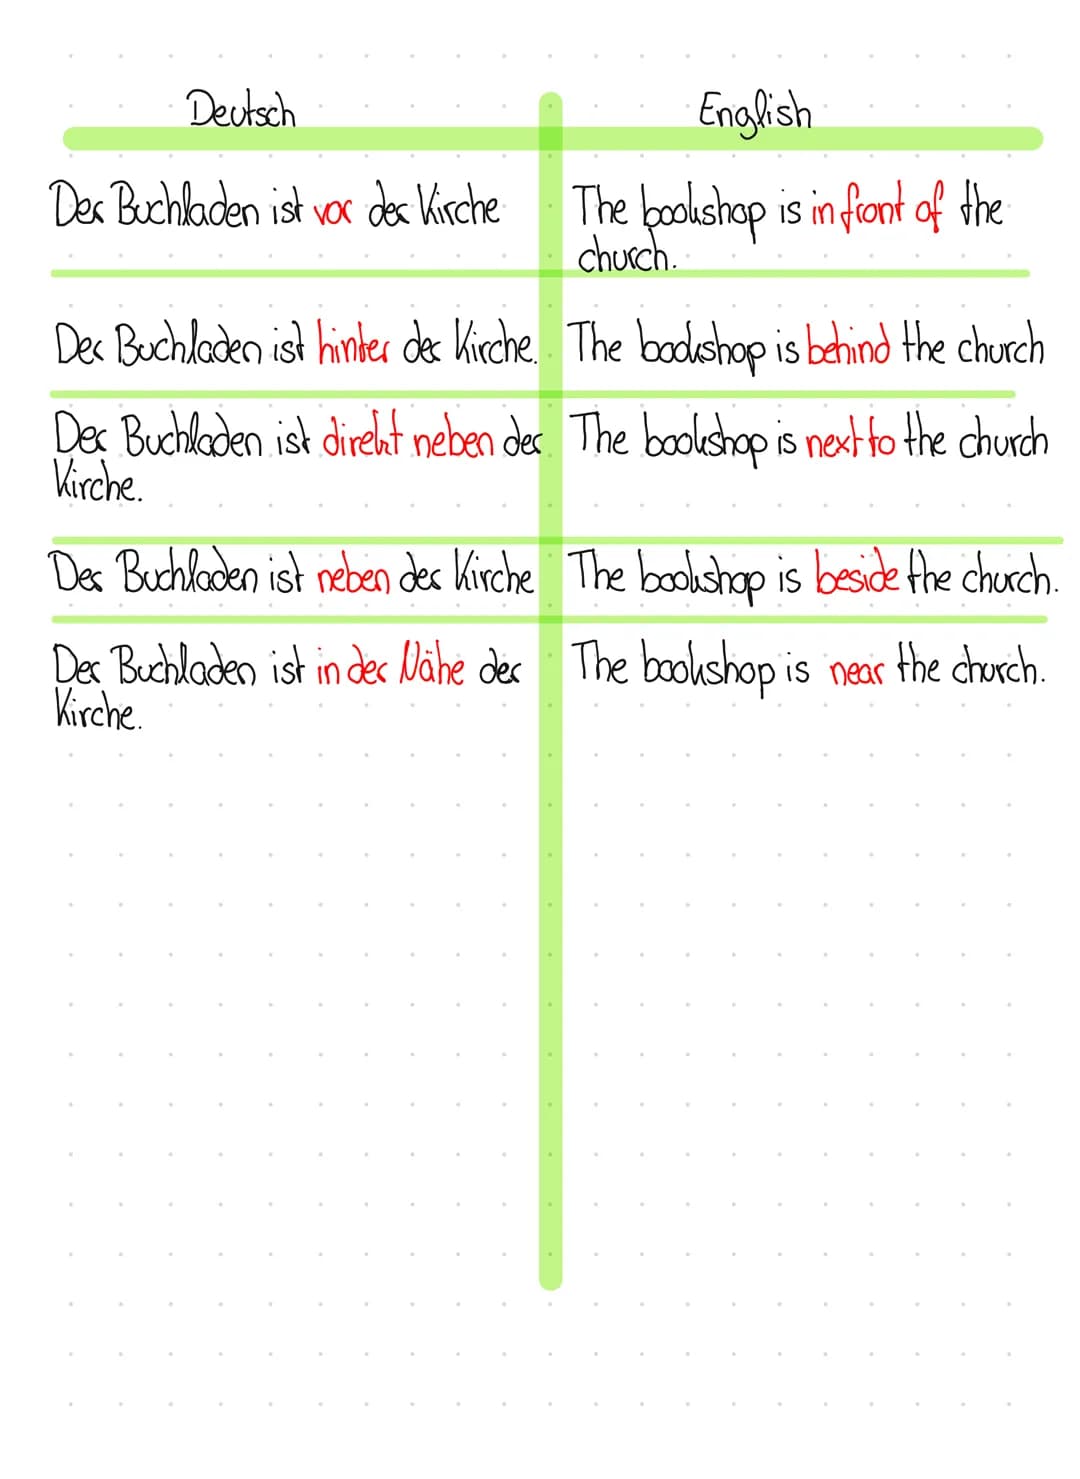 Deutsch
English
Der Buchladen ist vor der Kirche
The bookshop is in front of the
church.
Der Buchladen ist hinter der Kirche.
The bookshop is behind the church
Der Buchladen ist direkt neben der
Kirche.
The bookshop is next to the church
Der Buchladen ist neben der Kirche
The bookshop is beside the church.
Der Buchladen ist in der Nähe der
Kirche.
The bookshop is near the church.